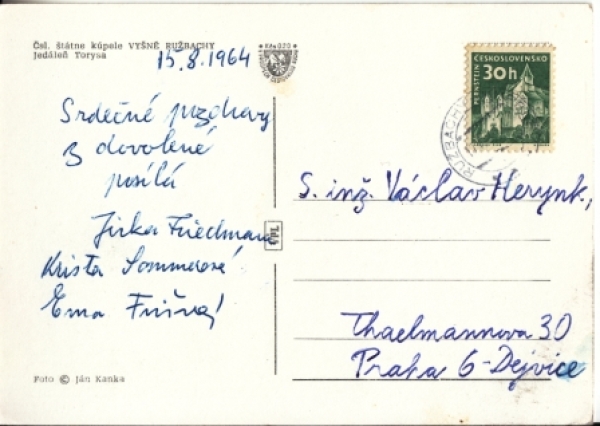 Čsl. štátne kúpele VYŠNÉ RUŽBACHY
Jedáleň Torysa
15.8.1964
Srdečné pozdravy
z dovolené
posílá
Jirka Friedmann
Krista Sommerová
Ema
Foto © Ján Kanka
ČESKOSLOVENSKO
30h
PERNŠTEJN
RUŽBACHY
S. inž. Václav Herynk,
Thaelmannova 30
Praha 6-Dejvice